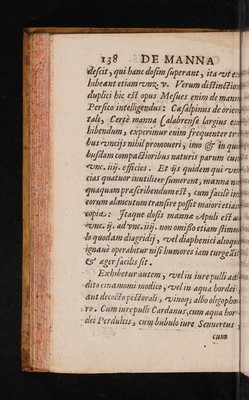 138 DE MANNA
descit, qui hanc dosim superant, ita vt ex
hibeant etiam vnz. v. Verum distinctio
duplici hic est opus Mesues enim de mann
Persico intelligendus: Cæsalpinus de orien
tali, Certè manna Calabrense largius ex
hibendum, experimur enim frequenter tr
bus vncijs nihil promoueri, imo & in qui
busdam compactioribus naturis parum cum
vnc. iiij. efficies. Et ijs quidem qui vnn
cias quatuor inutiliter sumerent, manna n
quaquam præscribendum est, cum facilè in
eorum alimentum transire possit maiori etiam
copia: Itaque dosis mannæ Apuli est ad
vnc. ij. ad vnc. iiij. non omisso etiam stimu
lo quodam diagridij, vel diaphenici alioqu
ignauè operabitur nisi humores iam turgeāt
& æger facilis sit.
Exhibetur autem, vel in iure pulli ad
dito cinamomi modico, vel in aqua hordei
aut decocto pectorali, vinoq; albo oligopho
ro. Cum iure pulli Cardanus, cum aqua hor
dei Perdulcis, cum bubulo iure Sennertus
cum